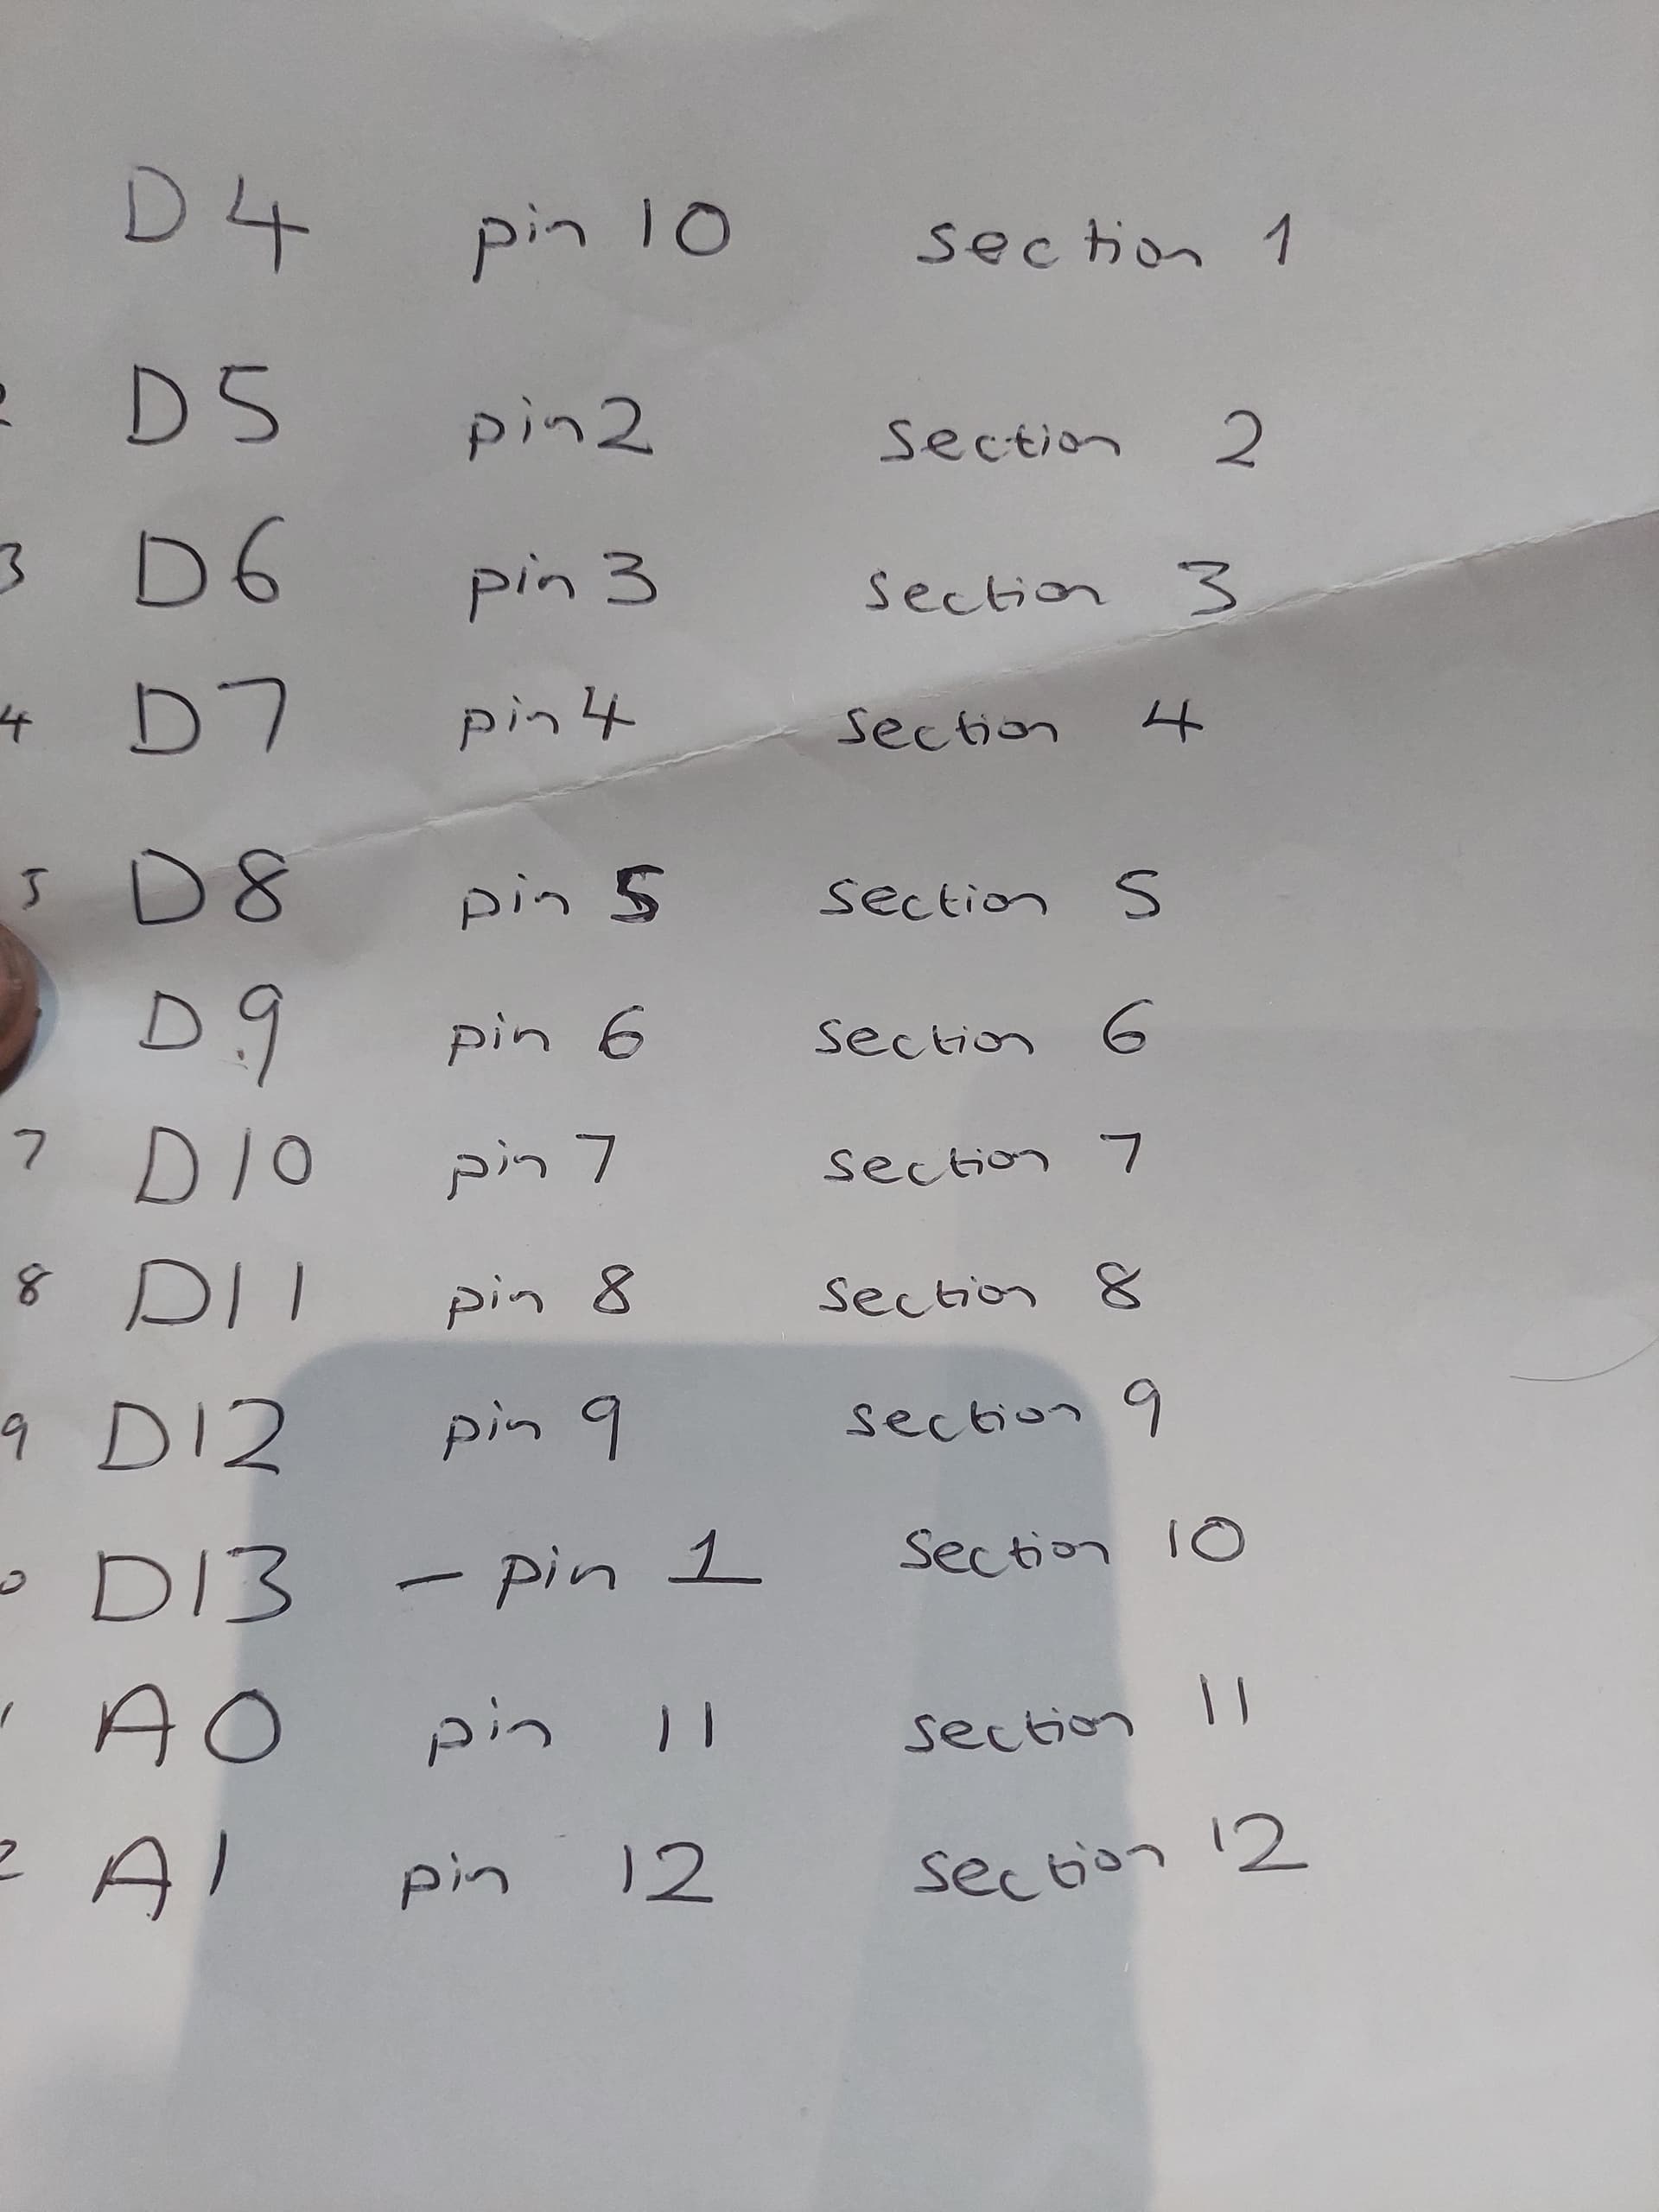 D4 pin 10 section 1
2 D5 pin 2 section 2
3 D6 pin 3 section 3
4 D7 pin 4 section 4
5 D8 pin 5 section 5
D9 pin 6 section 6
7 D10 pin 7 section 7
8 D11 pin 8 section 8
9 D12 pin 9 section 9
0 D13 - pin 1 section 10
1 A0 pin 11 section 11
2 A1 pin 12 section 12